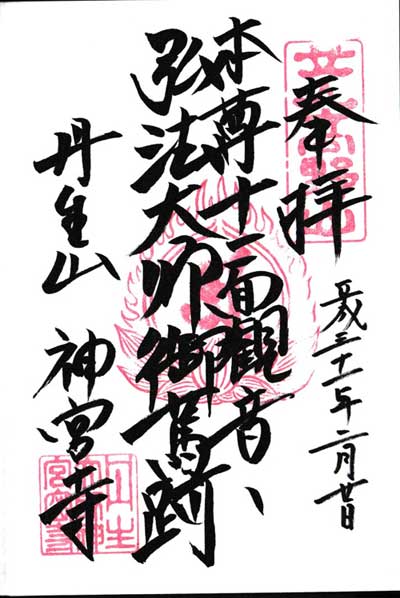 奉拝
平成三十一年二月廿日
本尊十一面観音、
弘法大师御舊跡
丹生山 神宮寺